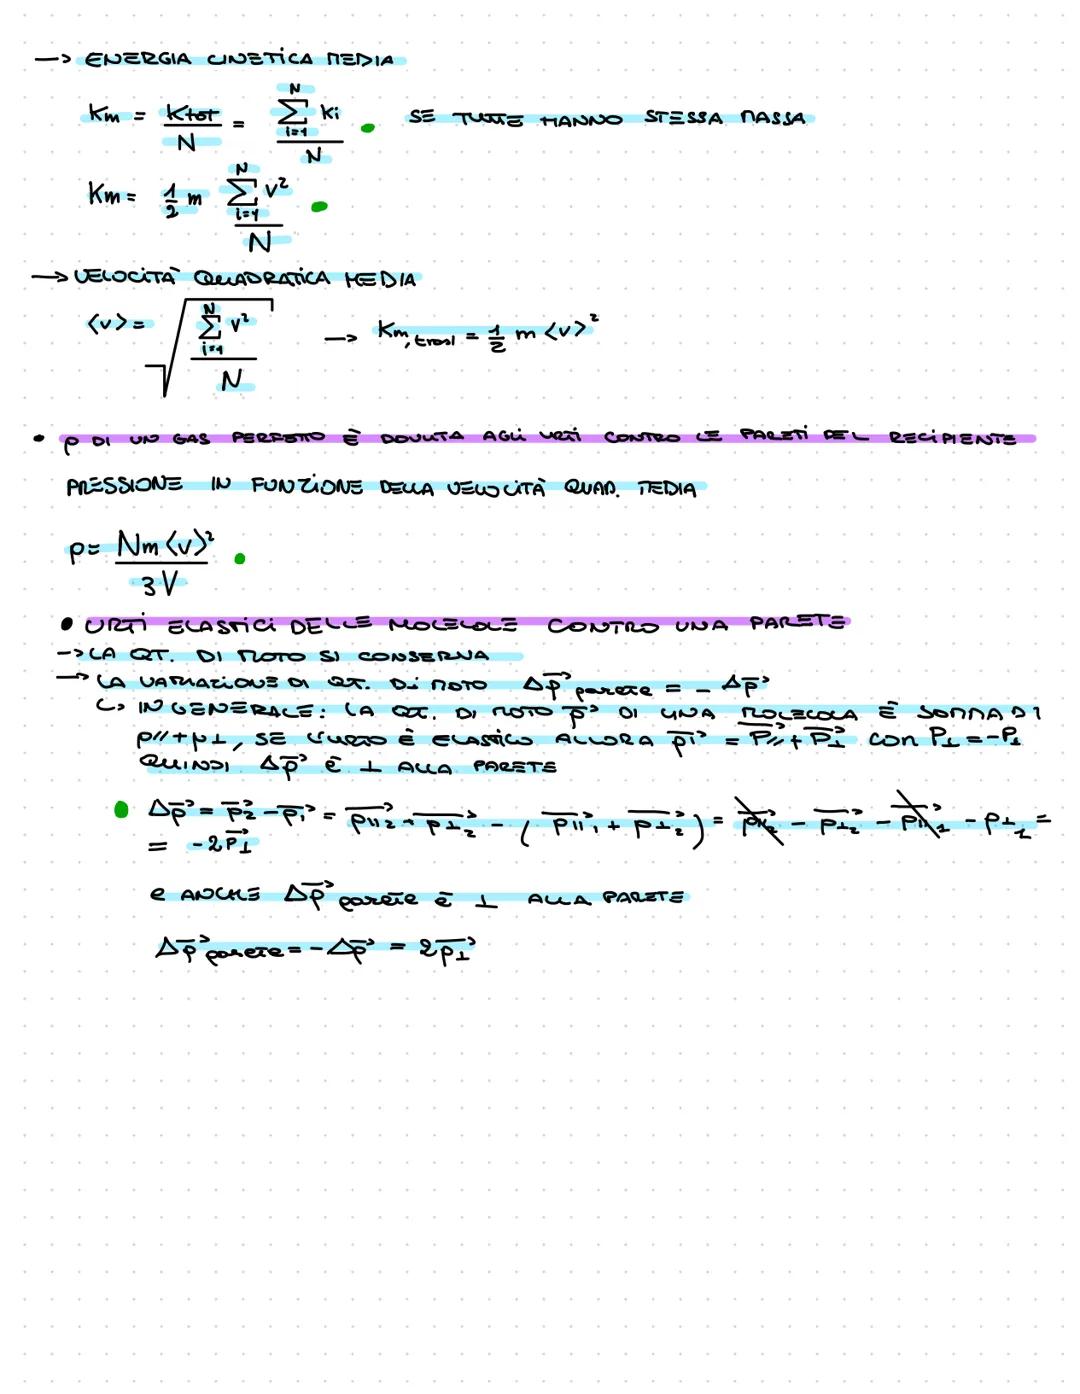 → ENERGIA CINETICA MEDIA
Km = Ktot/N = ∑ᵢ₌₁ᴺ Ki / N • SE TUTTE HANNO STESSA MASSA
Km = 1/2 m ∑ᵢ₌₁ᴺ v² / N •
→ VELOCITÀ QUADRATICA MEDIA
<v> = √(∑ᵢ₌₁ᴺ v² / N) → Km,trasl = 1/2 m <v>²
• p DI UN GAS PERFETTO È DOVUTA AGLI URTI CONTRO LE PARETI DEL RECIPIENTE
PRESSIONE IN FUNZIONE DELLA VELOCITÀ QUAD. MEDIA
p = Nm<v>² / 3V •
• URTI ELASTICI DELLE MOLECOLE CONTRO UNA PARETE
→ LA QT. DI MOTO SI CONSERVA
→ LA VARIAZIONE DI QT. DI MOTO Δp⃗ parete = - Δp⃗
↳ IN GENERALE: LA QT. DI MOTO p⃗ DI UNA MOLECOLA È SOMMA DI
p// + p⊥, SE L'URTO È ELASTICO ALLORA p⃗i = p⃗// + p⃗⊥ con P⊥ = -P⊥
QUINDI Δp⃗ è ⊥ ALLA PARETE
• Δp⃗ = p⃗2 - p⃗1 = p⃗∥2 + p⃗⊥2 - (p⃗∥1 + p⃗⊥2) = p⃗∥2 - p⃗⊥2 - p⃗∥1 - p⊥1 =
= -2p⃗⊥
e ANCHE Δp⃗ parete è ⊥ ALLA PARETE
Δp⃗ parete = -Δp⃗ = 2p⃗⊥